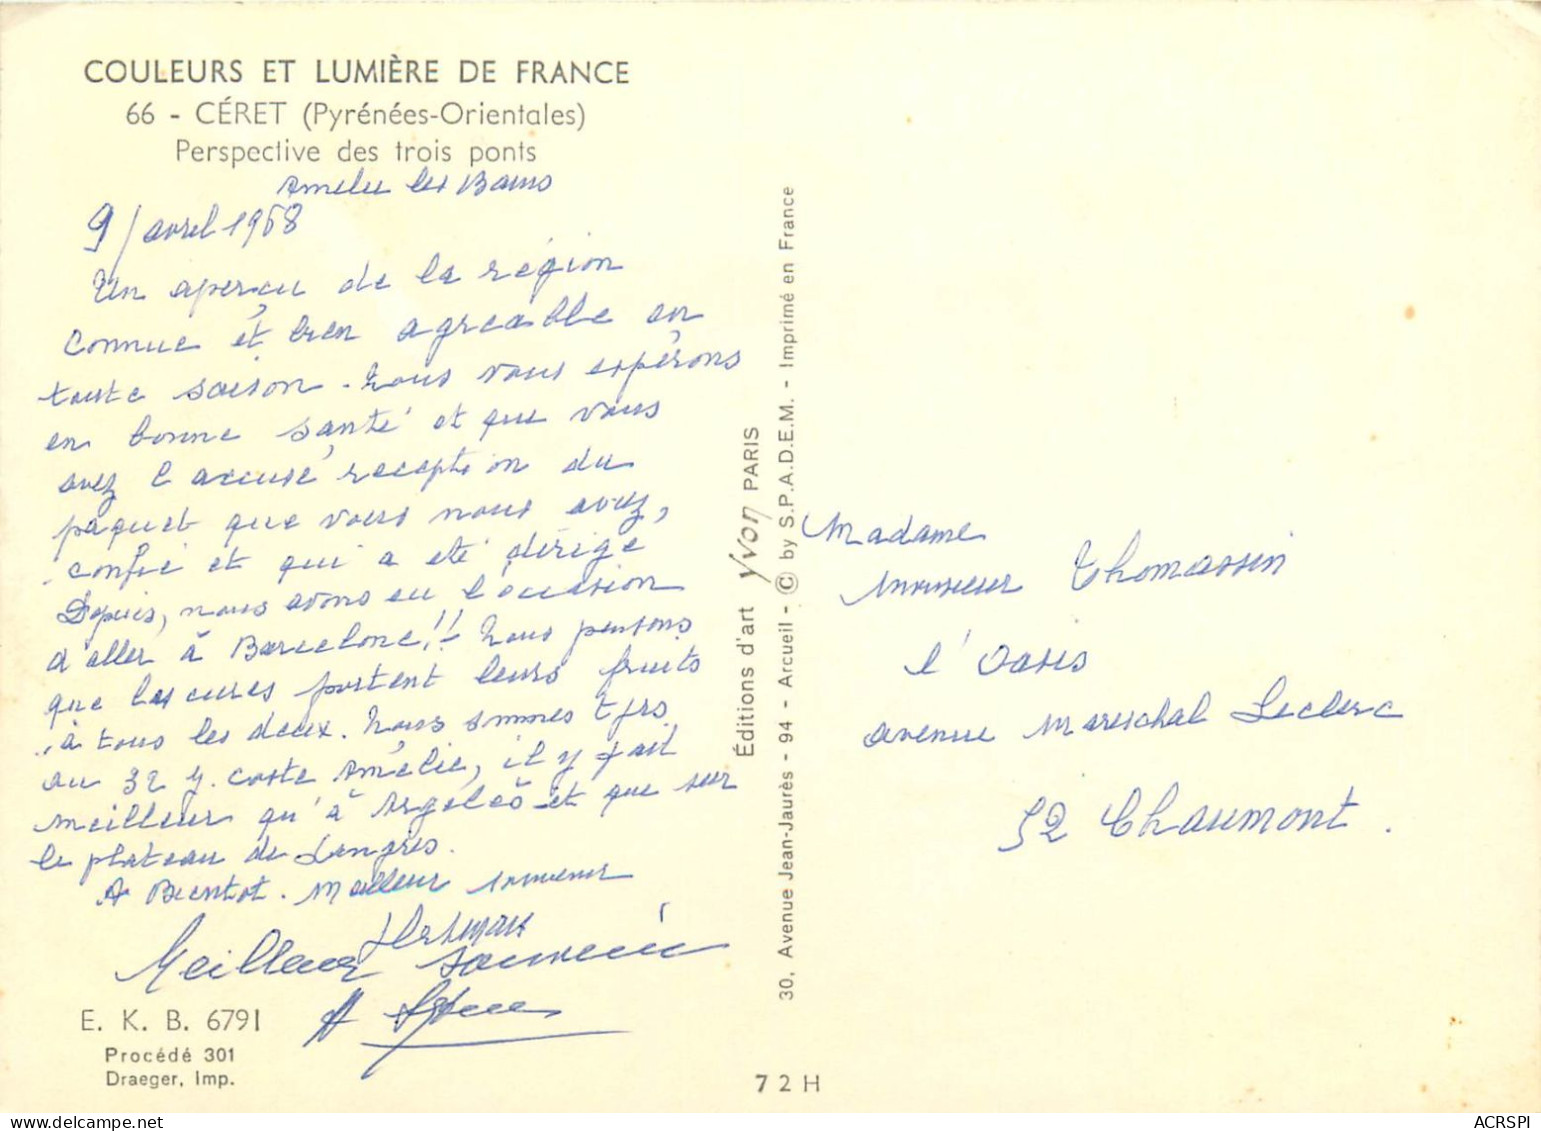 COULEURS ET LUMIÈRE DE FRANCE
66 - CÉRET (Pyrénées-Orientales)
Perspective des trois ponts
Amelie les Bains
9/ avril 1968
Un aperçu de la région
connue et bien agreable en
toute saison. Nous vous espérons
en bonne santé et que vous
avez l'accusé reception du
paquet que vous nous avez,
confié et qui a eté dirigé
Depuis, nous avons eu l'occasion
d'aller à Barcelone!! Nous pensons
que les cures portent leurs fruits
à tous les deux. Nous sommes tjrs
au 32 y. coste Amélie, il y fait
meilleur qu'à Argelès et que sur
le plateau de Langres.
A Bientot. Meilleur souvenir
Meilleur souvenir
E. K. B. 6791
Procédé 301
Draeger, Imp.
Éditions d'art Yvon PARIS
30, Avenue Jean-Jaurès - 94 - Arcueil - © by S.P.A.D.E.M. - Imprimé en France
72H
Madame
Monsieur Thomassin
l'Oasis
avenue Mareschal Leclerc
52 Chaumont.
ACRSPI